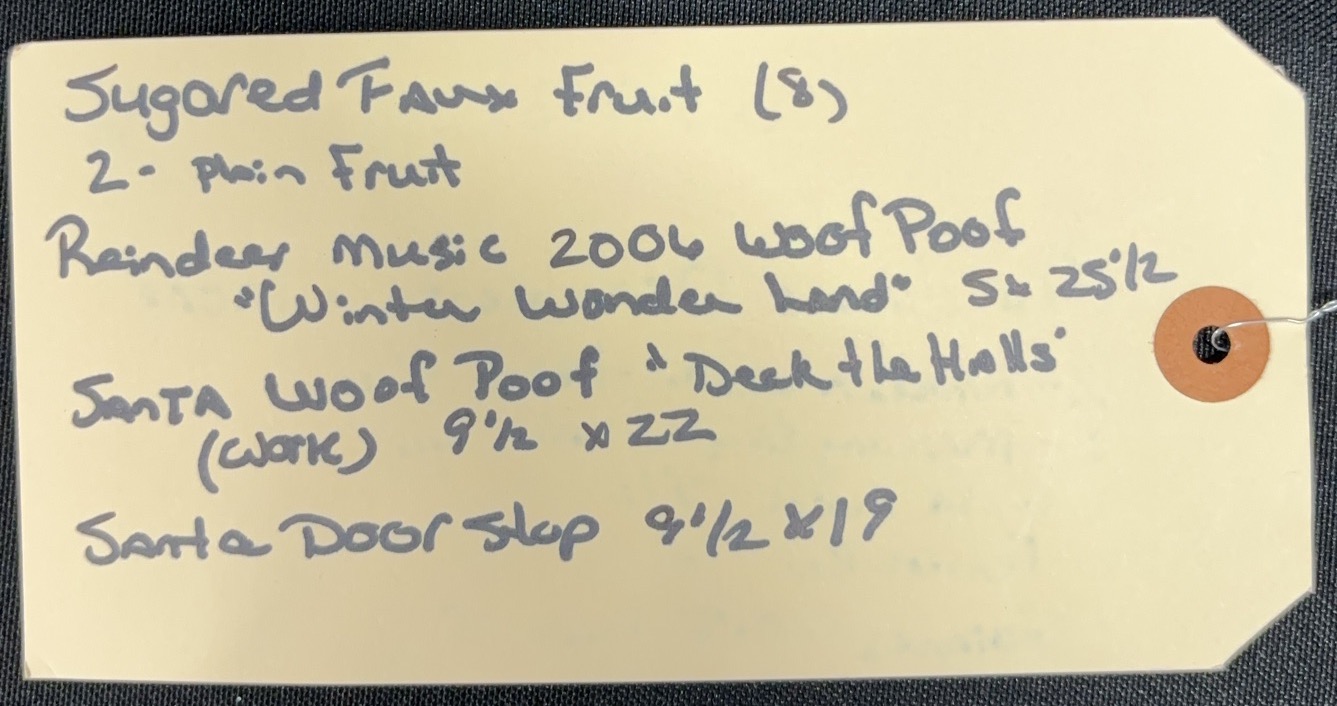 Sugared Faux Fruit (8)
2- Plain Fruit
Reindeer Music 2006 Woof Poof
"Winter Wonder Land" 5x 25 1/2
Santa Woof Poof "Deck the Halls"
(Work) 9 1/2 x 22
Santa Door Stop 9 1/2 x 19